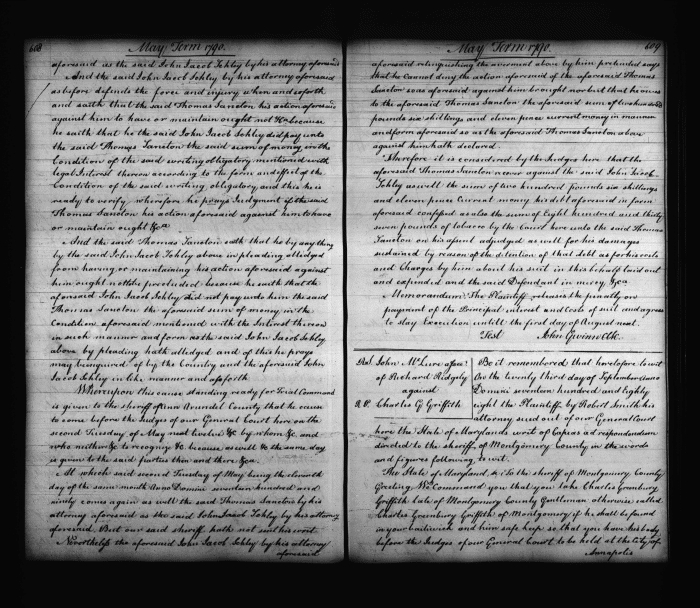 608
May Term 1790.
aforesaid as the said John Jacob Tehley by his attorney aforesaid
And the said John Jacob Tehley by his attorney aforesaid
as before defends the force and injury when and soforth
and saith that the said Thomas Saneton his action aforesaid
against him to have or maintain ought not &c because
he saith that he the said John Jacob Tehley did pay unto
the said Thomas Saneton the said sum of money in the
Condition of the said writing obligatory mentioned with
legal Interest thereon according to the form and effect of the
Condition of the said writing obligatory and this he is
ready to verify wherefore he prays Judgment if the said
Thomas Saneton his action aforesaid against him to have
or maintain ought &ca
And the said Thomas Saneton saith that he by any thing
by the said John Jacob Tehley above in pleading alledged
from having or maintaining his action aforesaid against
him ought not to be precluded because he saith that the
aforesaid John Jacob Tehley did not pay unto him the said
Thomas Saneton the aforesaid sum of money in the
Condition aforesaid mentioned with the Interest thereon
in such manner and form as the said John Jacob Tehley
above by pleading hath alledged and of this he prays
may be enquired of by the Country and the aforesaid John
Jacob Tehley in like manner and soforth
Whereupon this cause standing ready for Trial Command
is given to the sheriff of Ann Arundel County that he cause
to come before the Judges of our General Court here on the
second Tuesday of May next twelve &c by whom &c and
who neither &c to recogniz &c because as well &c the same day
is given to the said parties then and there &ca
At which said second Tuesday of May being the eleventh
day of the same month Anno Domini seventeen hundred and
ninety comes again as well the said Thomas Saneton by his
attorney aforesaid as the said John Jacob Tehley by his attorney
aforesaid. But our said sheriff hath not sent his writ
Nevertheless the aforesaid John Jacob Tehley by his attorney
aforesaid
May Term 1790.
609
aforesaid relinquishing the averment above by him pretended says
that he Cannot deny the action aforesaid of the aforesaid Thomas
Saneton so as aforesaid against him brought nor but that he owes
to the aforesaid Thomas Saneton the aforesaid sum of two hundred
pounds six shillings and eleven pence current money in manner
and form aforesaid as the aforesaid Thomas Saneton above
against him hath declared.
Therefore it is considered by the Judges here that the
aforesaid Thomas Saneton recover against the said John Jacob
Tehley as well the sum of two hundred pounds six shillings
and eleven pence Current money his debt aforesaid in form
aforesaid confessed as also the sum of Eight hundred and thirty
seven pounds of tobacco by the Court here unto the said Thomas
Saneton on his assent adjudged as well for his damages
sustained by reason of the detention of that debt as for his costs
and Charges by him about his suit in this behalf laid out
and expended and the said Defendant in mercy &ca
Memorandum. The Plaintiff releases the penalty on
payment of the Principal interest and Costs of suit and agrees
to stay Execution untill the first day of August next.
Test John Gwinn Clk.
John McLure assee
of Richard Ridgely
against
Charles G Griffith
Be it remembered that heretofore to wit
On the twenty third day of September Anno
Domini seventeen hundred and Eighty
eight the Plaintiff by Robert Smith his
attorney sued out of our General Court
here the State of Marylands writ of Capias ad respondendum
directed to the sheriff of Montgomery County in the words
and figures following to wit.
The State of Maryland, sc. To the sheriff of Montgomery County
Greeting We Command you that you take Charles Greenbury
Griffith late of Montgomery County Gentleman otherwise called
Charles Greenbury Griffith of Montgomery if he shall be found
in your bailiwick and him safe keep so that you have his body
before the Judges of our General Court to be held at the City of
Annapolis